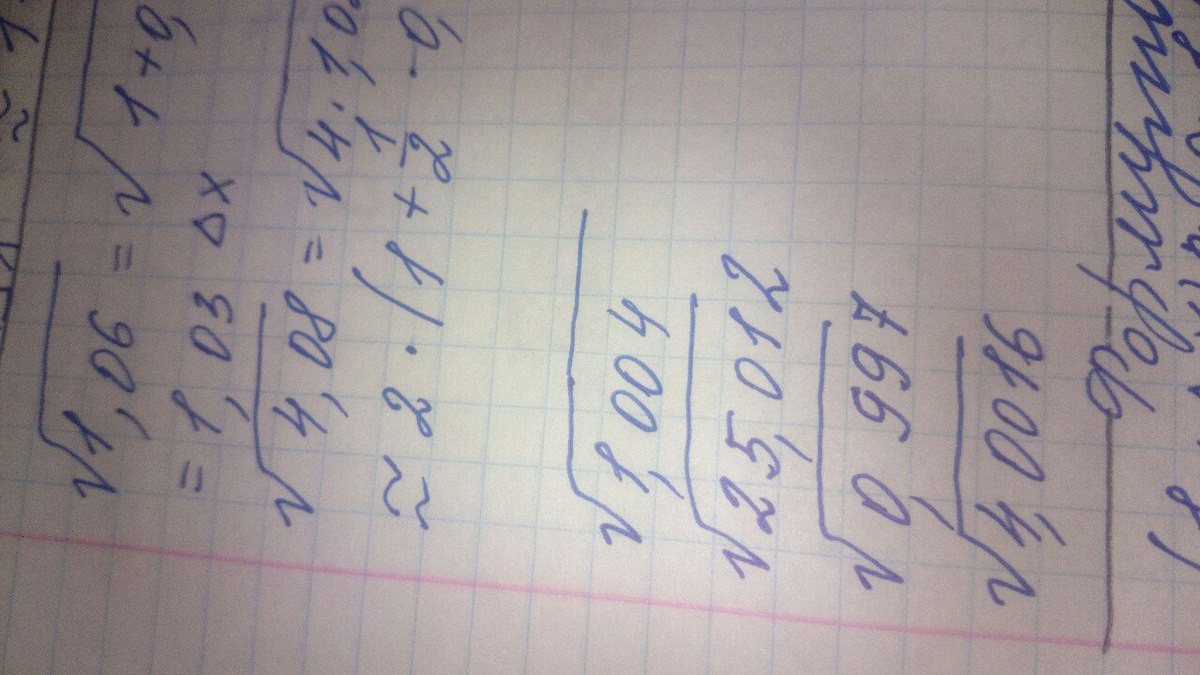 √1,06 = √1+0,
= 1,03 Δx
√4,08 = √4·1,0
≈ 2 · (1 + 1/2 · 0,
√1,004
√25,012
√0,997
√4,0016